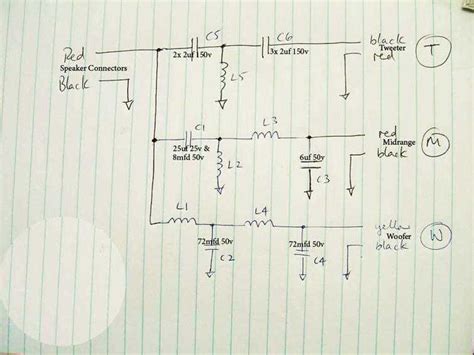 C5
C6
black
Red
2x 2uf 150v
3x 2uf 150v
Tweeter
T
Speaker Connectors
red
L5
Black
C1
L3
red
25uf 25v &
Midrange
M
8mfd 50v
L2
6uf 50v
black
C3
L1
L4
yellow
72mfd 50v
72mfd 50v
Woofer
W
C2
C4
black